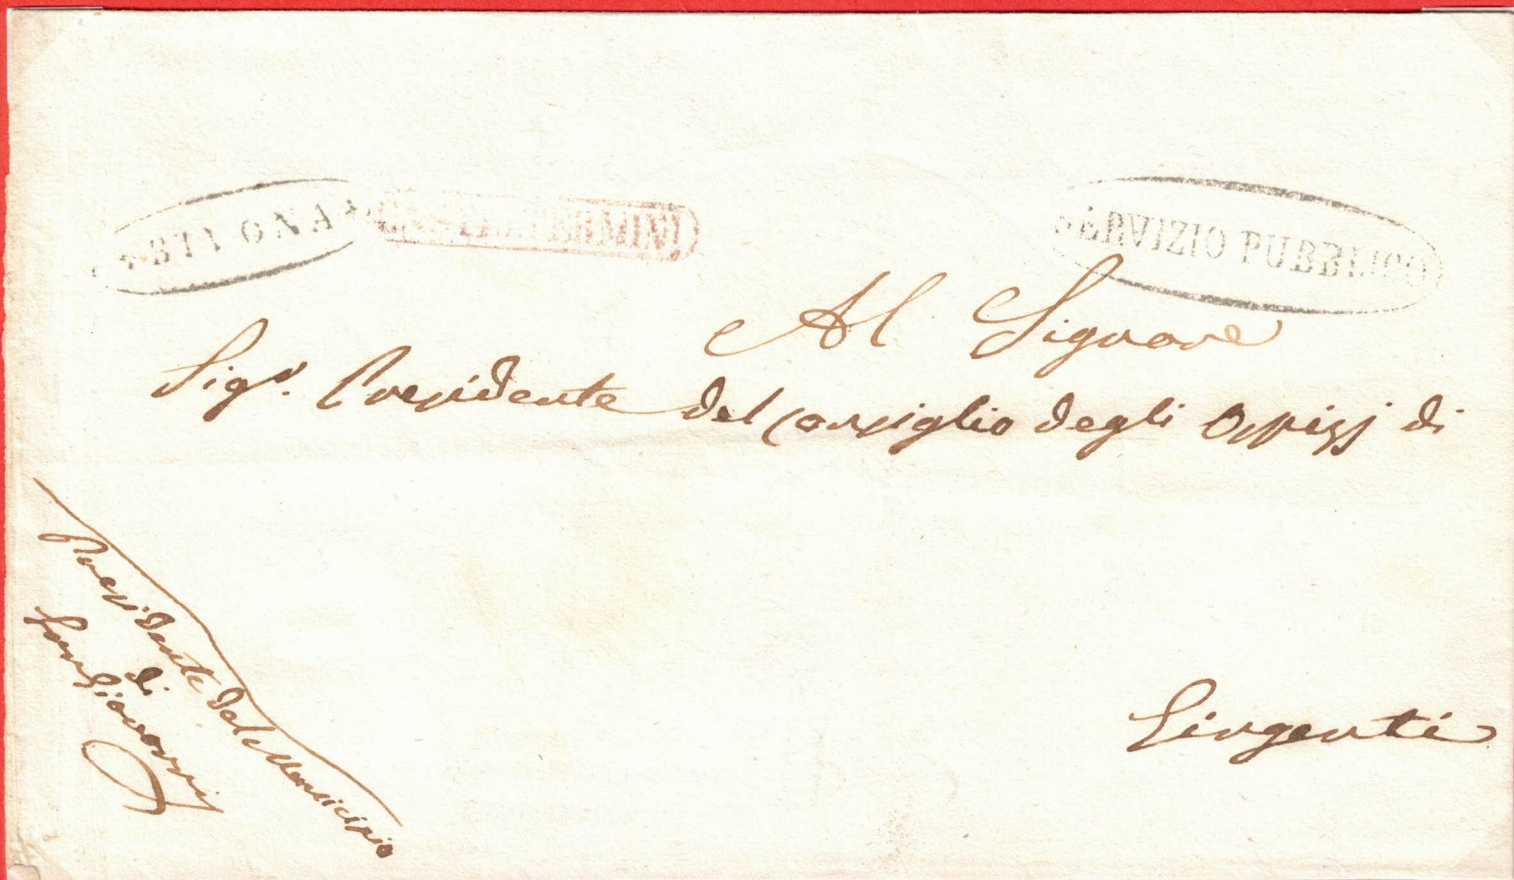 BIVONA
CASTELTERMINI
SERVIZIO PUBBLICO
Al Signore
Sigr. Presidente del Consiglio degli Ospizj di
Girgenti
Presidente del Municipio
di
San Giovanni